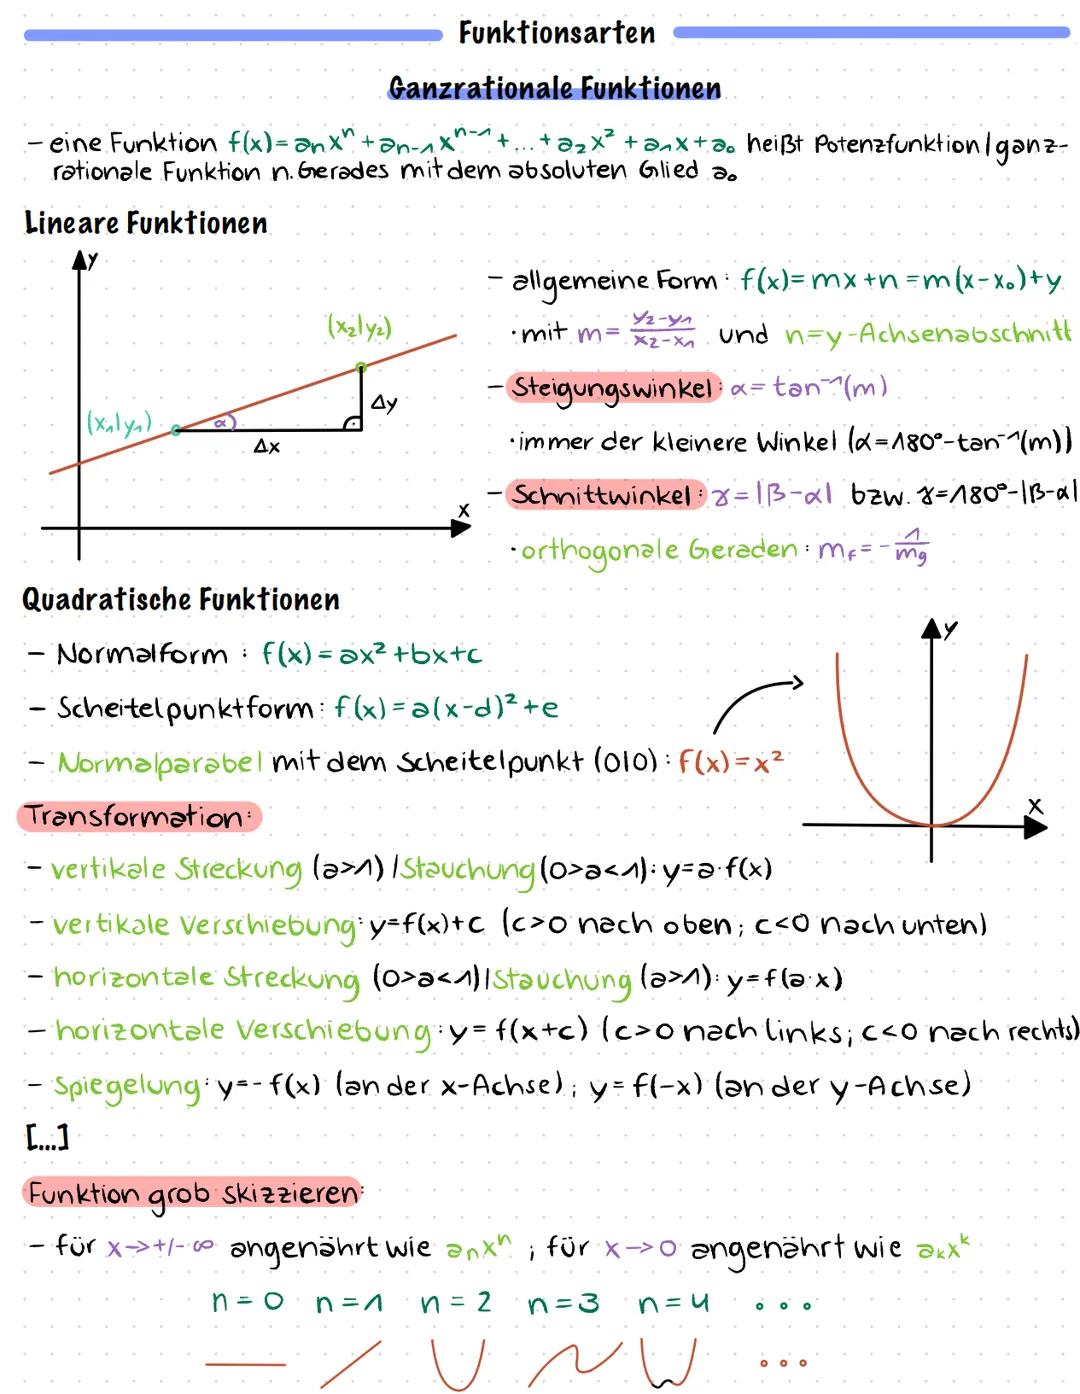 Funktionsarten
Ganzrationale Funktionen
– eine Funktion f(x)=aₙxⁿ+aₙ₋₁xⁿ⁻¹+...+a₂x²+a₁x+a₀ heißt Potenzfunktion/ganz-
rationale Funktion n. Gerades mit dem absoluten Glied a₀
Lineare Funktionen
y
(x₂|y₂)
(x₁|y₁)
α
Δy
Δx
x
– allgemeine Form: f(x)=mx+n=m(x-x₀)+y
· mit m= (y₂-y₁)/(x₂-x₁) und n=y-Achsenabschnitt
– Steigungswinkel: α=tan⁻¹(m)
· immer der kleinere Winkel (α=180°-tan⁻¹(m))
– Schnittwinkel: γ=|β-α| bzw. γ=180°-|β-α|
· orthogonale Geraden: m_f=-1/m_g
Quadratische Funktionen
– Normalform: f(x)=ax²+bx+c
– Scheitelpunktform: f(x)=a(x-d)²+e
– Normalparabel mit dem Scheitelpunkt (0|0): f(x)=x²
y
x
Transformation:
– vertikale Streckung (a>1)/Stauchung (0>a<1): y=a·f(x)
– vertikale Verschiebung: y=f(x)+c (c>0 nach oben; c<0 nach unten)
– horizontale Streckung (0>a<1)/Stauchung (a>1): y=f(a·x)
– horizontale Verschiebung: y=f(x+c) (c>0 nach links; c<0 nach rechts)
– Spiegelung: y=-f(x) (an der x-Achse); y=f(-x) (an der y-Achse)
[...]
Funktion grob skizzieren:
– für x→+/-∞ angenährt wie aₙxⁿ; für x→0 angenährt wie aₖxᵏ
n=0 n=1 n=2 n=3 n=4 ...
...